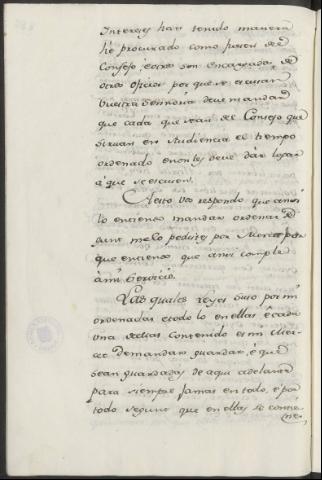 Intereses han tenido manera
hé procurado como fuesen del
Consejo, é otros son encargados, de
otros oficios por que se escusan
Vuestra Señoria deve mandar
que cada que sean del Consejo que
sirvan en su Audiencia el tiempo
ordenado é non les deve dar logar
á que se escusen.
Aesto vos respondo que ansi
lo entiendo mandar ordenar se
gunt me lo pedistes por Merced por
que entiendo que ansi comple
á mi Servicio.
Las quales leyes suso por mi
ordenadas é todo lo en ellas é cada
una dellas contenido es mi Mer-
ced de mandar guardar, é que
sean guardadas de aqui adelante
para siempre jamas en todo, é por
todo segunt que en ellas se contie
ne